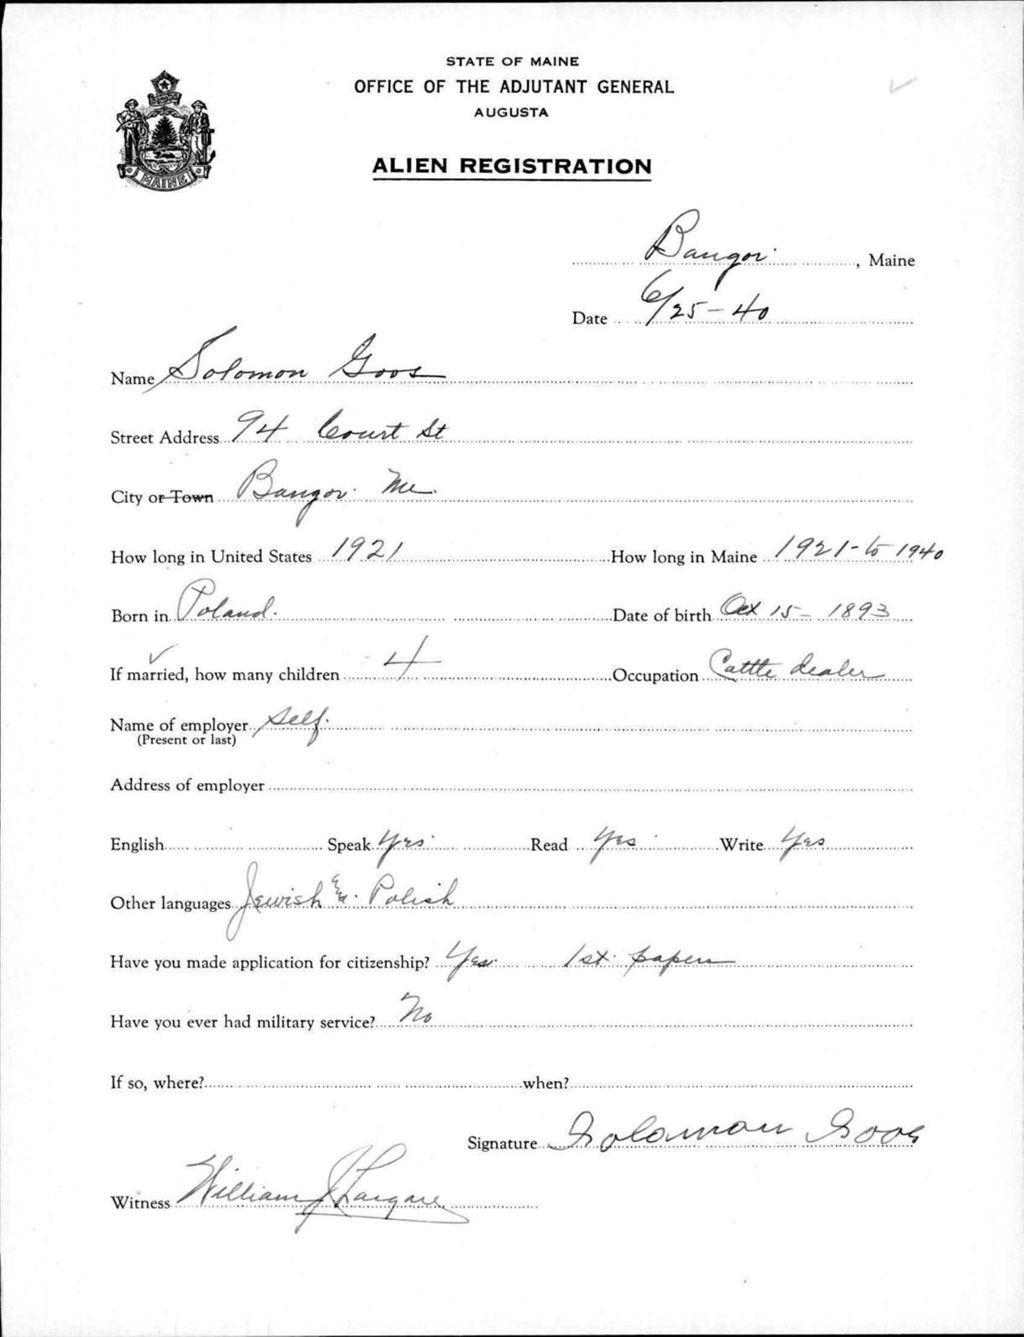 STATE OF MAINE
OFFICE OF THE ADJUTANT GENERAL
AUGUSTA
ALIEN REGISTRATION
MAINE
Bangor, Maine
Date 6/25-40
Name Solomon Goos
Street Address 94 Court St
City or Town Bangor. Me.
How long in United States 1921 How long in Maine 1921-to 1940
Born in Poland. Date of birth Oct 15- 1893
If married, how many children 4 Occupation Cattle dealer
Name of employer self.
(Present or last)
Address of employer
English Speak Yes Read Yes Write Yes
Other languages Jewish Polish
Have you made application for citizenship? Yes. 1st. papers
Have you ever had military service? No
If so, where? when?
Signature Solomon Goos
Witness William J